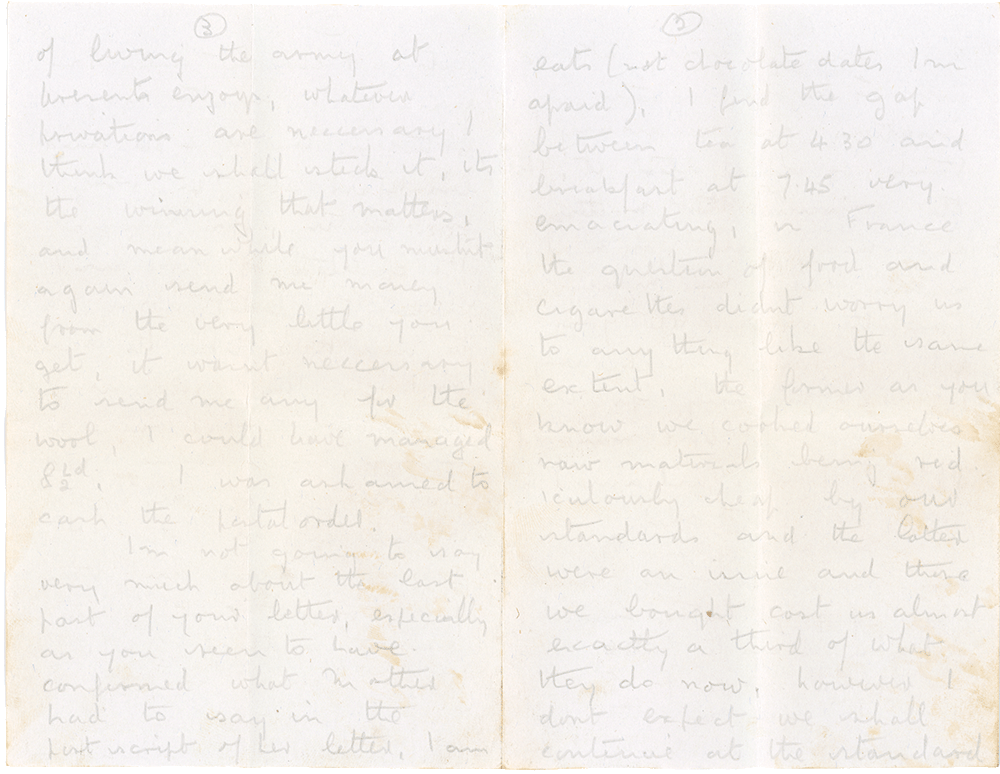 3
of living the army at
presents enjoys, whatever
privations are neccersary I
think we shall stick it, its
the winning that matters,
and meanwhile you mustnt
again send me money
from the very little you
get, it wasnt neccersary
to send me any for the
wool, I could have managed
8½d. I was ashamed to
cash the postal order.
Im not going to say
very much about the last
part of your letter, especially
as you seem to have
confirmed what Mother
had to say in the
post script of her letter. I am
2
eats (not chocolate dates Im
afraid), I find the gap
between tea at 4 30 and
breakfast at 7.45 very
emaciating, in France
the question of food and
cigarettes didnt worry us
to anything like the same
extent, the former as you
know we cooked ourselves
raw materials being rid
iculously cheap by our
standards and the latter
were an issue and those
we bought cost us almost
exactly a third of what
they do now, however I
dont expect we shall
continue at the standard